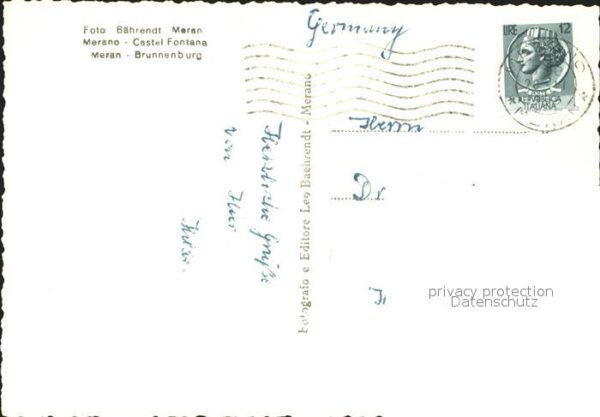 Foto Bährendt Meran
Merano - Castel Fontana
Meran - Brunnenburg
Germany
LIRE 12
REPVBBLICA
ITALIANA
Fotografo e Editore Leo Baehrendt - Merano
Herzliche Grüße
von Ihrer
Herrn
Dr
privacy protection
Datenschutz